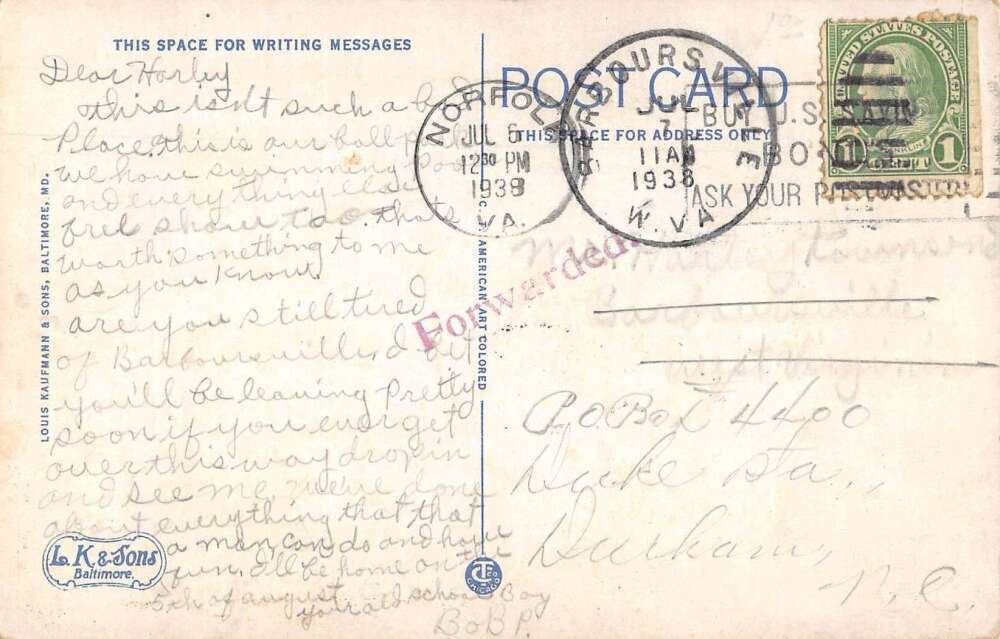 THIS SPACE FOR WRITING MESSAGES
Dear Harley
this isn't such a bad
Place. this is our ball park
we have swimming Pool
and every thing else
free show too. thats
worth something to me
as you know.
are you still tired
of Barboursville, I bet
you'll be leaving Pretty
soon if you ever get
over this way drop in
and see me. we've done
about everything that that
a man can do and have
fun. I'll be home on the
5th of august
your old school Boy
BoB P.
LOUIS KAUFMANN & SONS, BALTIMORE, MD.
L. K. & Sons
Baltimore.
AMERICAN ART COLORED
CHICAGO
POST CARD
THIS SPACE FOR ADDRESS ONLY
NORFOLK
JUL 6
12 30 PM
1938
VA.
BARBOURSVILLE
JUL
7
11 AM
1938
W. VA
BUY U.S.
ASK YOUR POSTMASTER
UNITED STATES POSTAGE
FRANKLIN
1 1
Forwarded.
Mr. Harley Townsend
Barboursville
West Virginia
P.O. Box 4400
Duke Sta.,
Durham,
N.C.